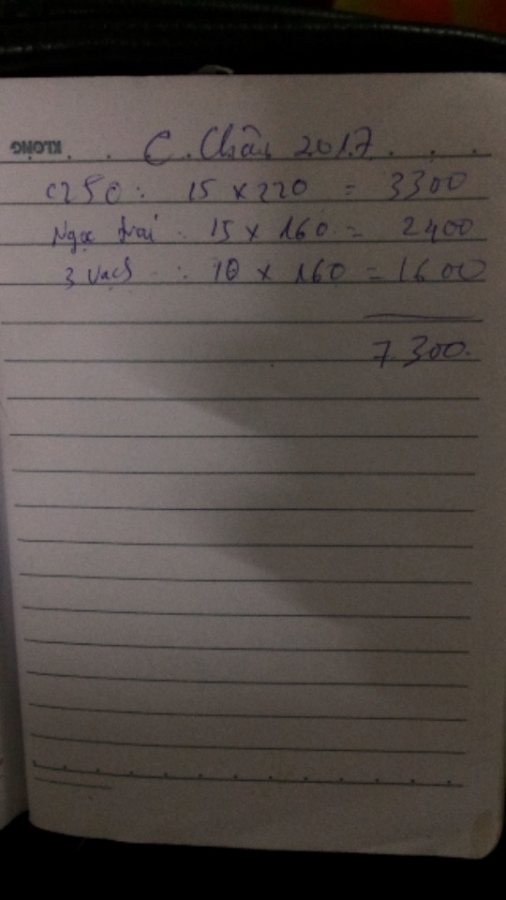 KLONG
C. Châu 2017
C250 : 15 x 220 = 3300
Ngọc trai : 15 x 160 = 2400
3 vạch : 10 x 160 = 1600
7.300.